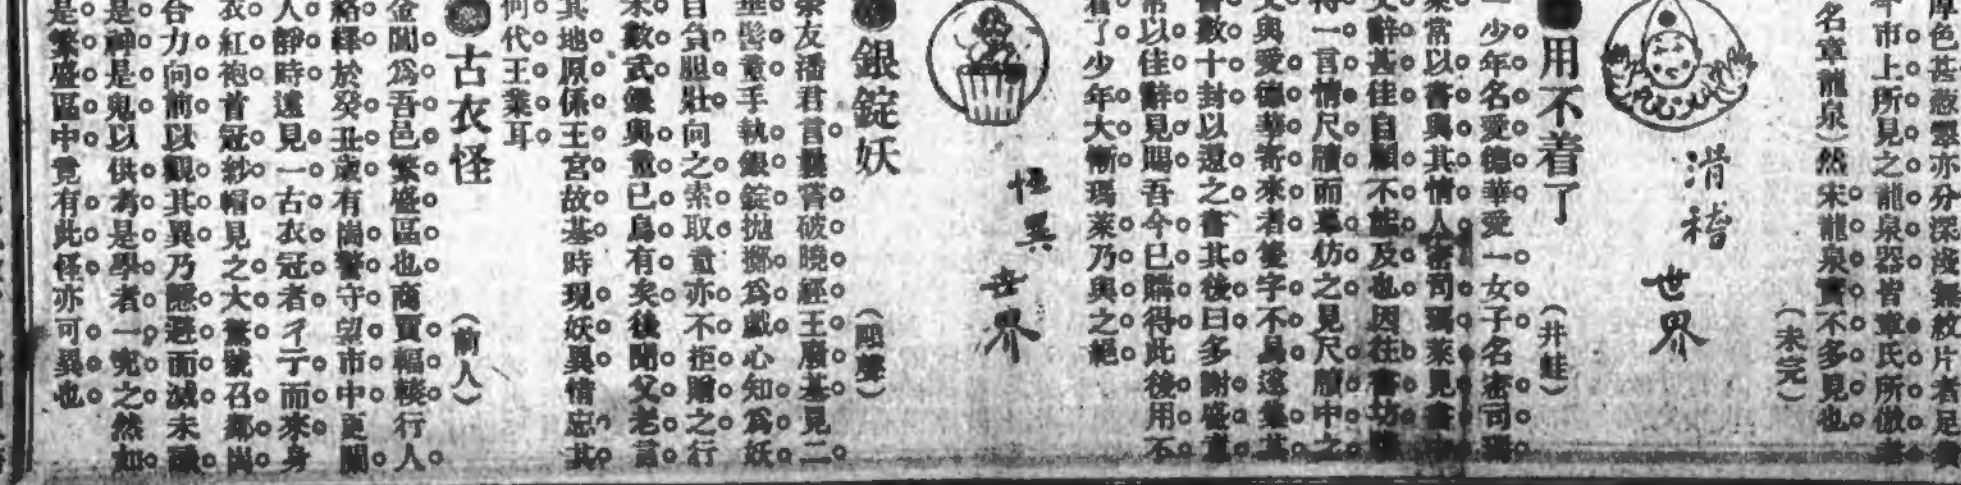 厚色甚葱翠亦分深淺無紋片者足貴
市上所見之龍泉器皆章氏所倣
名章龍泉）然宋龍泉實不多見也
（未完）
滑稽世界
用不着了
（井蛙）
一少年名愛德華愛一女子名密司瑪
萊常以書與其情人密司瑪萊見書
文辭甚佳自顧不能及也因往書坊
得一言情尺牘而摹仿之見尺牘中之
文與愛德華寄來者隻字不易遂集其
書數十封以還之書其後曰多謝盛意
常以佳辭見賜吾今已購得此後用不
着了少年大慚瑪萊乃與之絕
怪異世界
銀錠妖
友潘君言曩嘗破曉經王府基見二
垂髫童手執銀錠拋擲爲戲心知爲妖
自負胆壯向之索取童亦不拒贈之行
未數武銀與童已烏有矣後聞父老言
其地原係王宮故基時現妖異惜忘其
何代王業耳
古衣怪
（前人）
金閶爲吾邑繁盛區也商賈輻輳行人
絡繹於癸丑歲有崗警守望市中更闌
人靜時遠見一古衣冠者彳亍而來身
衣紅袍首冠紗帽見之大驚號召鄰崗
合力向前以觀其異乃隱避而滅未識
是神是鬼以供考是學者一究之然如
是繁盛區中竟有此怪亦可異也